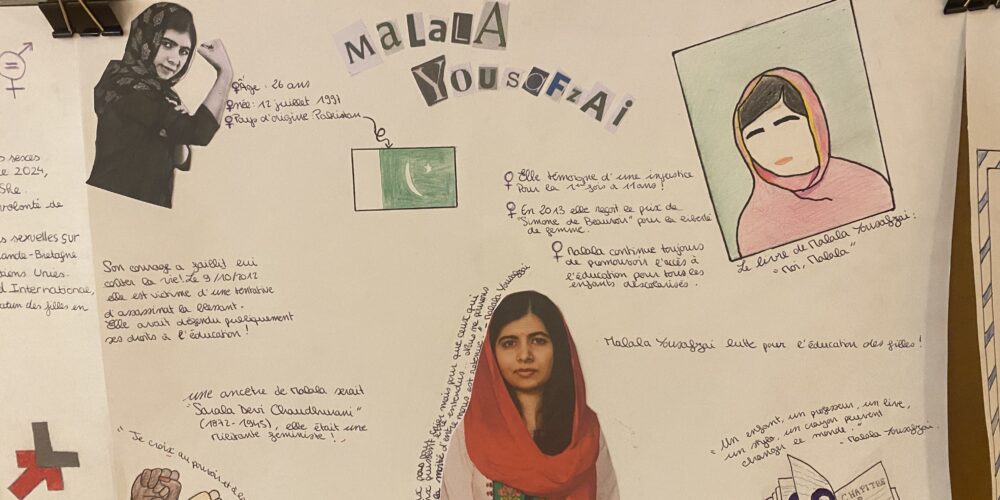 MALALA
YOUSAFZAI
Âge : 26 ans
née : 12 juillet 1997
Pays d'origine : Pakistan
Elle témoigne d'une injustice
Pour la 1ère fois à 11ans !
En 2013 elle reçoit le prix de
"Simone de Beauvoir" pour la liberté
de femme.
Malala continue toujours
de promouvoir l'accès à
l'éducation pour tous les
enfants déscolarisés.
Le livre de Malala Yousafzai :
"Moi, Malala"
Son courage a failli lui
coûter la vie ! Le 9/10/2012
elle est victime d'une tentative
d'assassinat la blessant.
Elle avait défendu publiquement
ses droits à l'éducation !
Malala Yousafzai lutte pour l'éducation des filles !
une ancêtre de Malala serait
"Sarala Devi Chaudhurani"
(1872-1945), elle était une
militante féministe !
"Je crois au pouvoir et
- Malala Yousafzai
"Un enfant, un professeur, un livre,
un stylo, un crayon peuvent
changer le monde."
- Malala Yousafzai.
CHAPITRE
sexes
2024,
She.
volonté de
sexuelles sur
Grande-Bretagne
Unies.
International,
des filles en